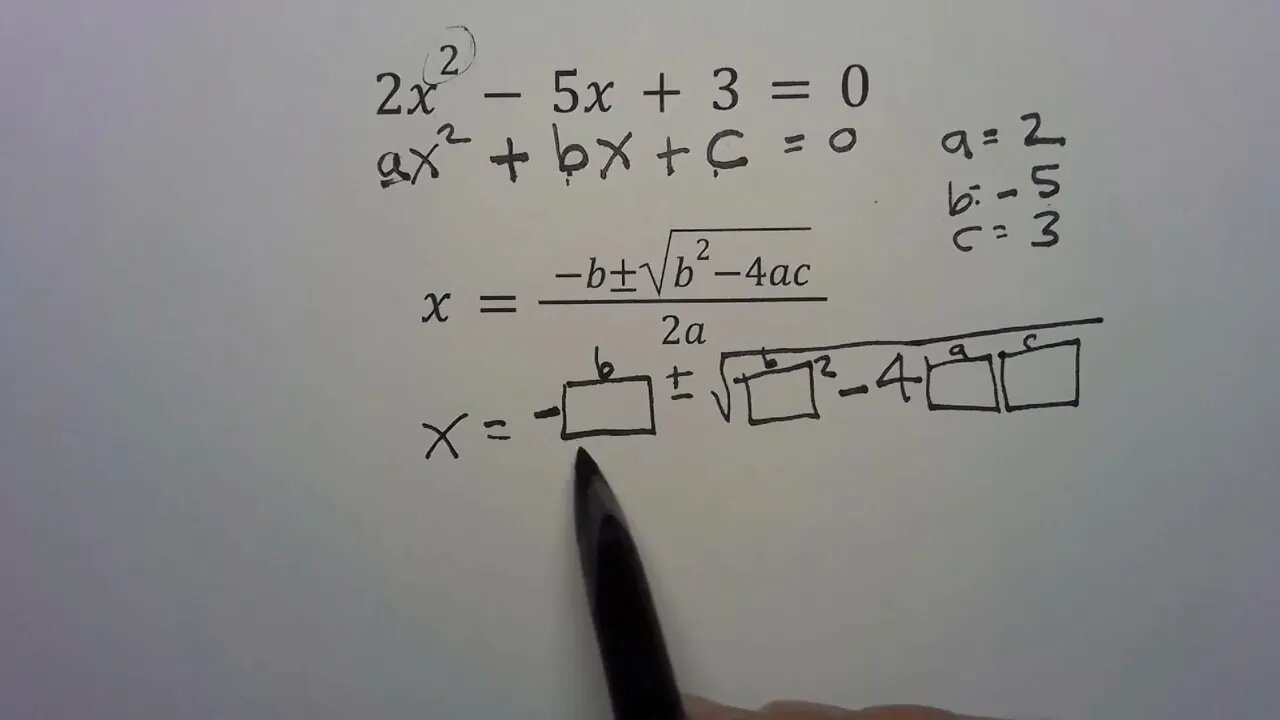 2x² − 5x + 3 = 0
ax² + bx + c = 0
a = 2
b = - 5
c = 3
x = (−b±√(b²−4ac))/(2a)
b b a c
x = -□ ± √(□² - 4□□)